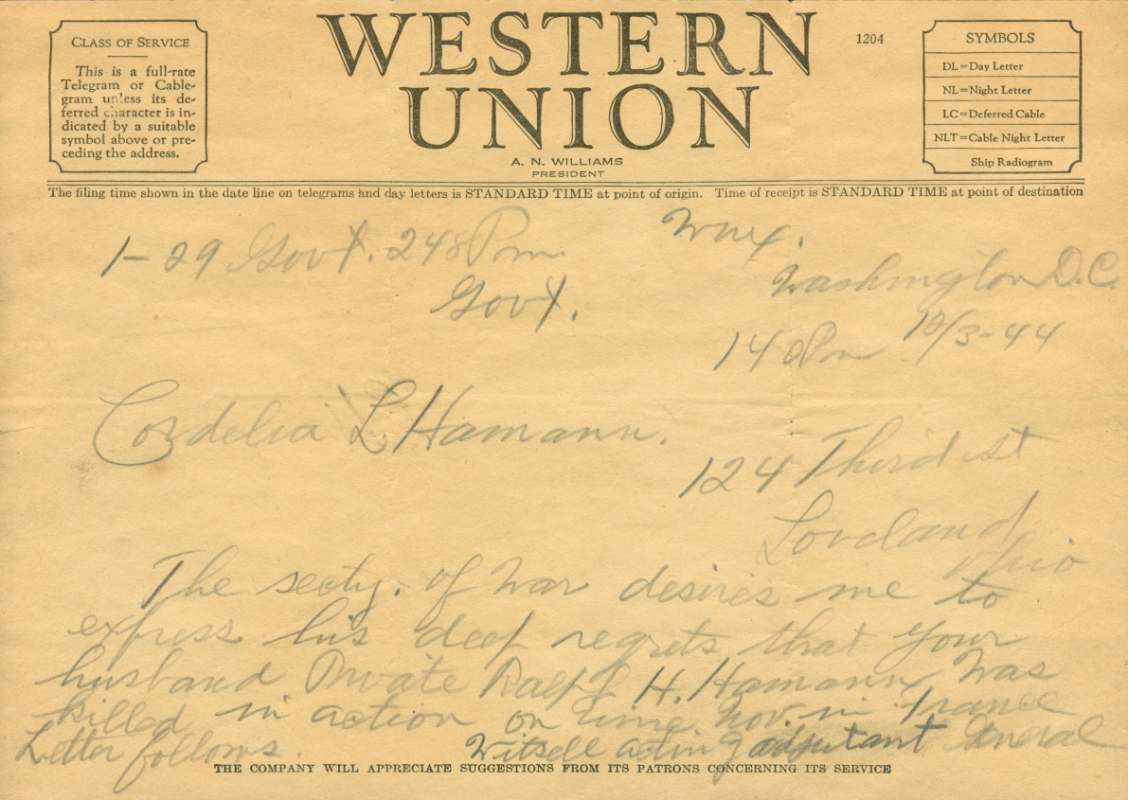 CLASS OF SERVICE
This is a full-rate
Telegram or Cable-
gram unless its de-
ferred character is in-
dicated by a suitable
symbol above or pre-
ceding the address.
WESTERN
UNION
1204
A. N. WILLIAMS
PRESIDENT
SYMBOLS
DL=Day Letter
NL=Night Letter
LC=Deferred Cable
NLT=Cable Night Letter
Ship Radiogram
The filing time shown in the date line on telegrams and day letters is STANDARD TIME at point of origin. Time of receipt is STANDARD TIME at point of destination
1-29 Govt. 248 Pm.
Govt.
Washington D.C.
Pm 10/3-44
Cordelia L Hamann.
124 Third St
Loveland
Ohio
The secty. of War desires me to
express his deep regrets that your
husband Private Ralph H. Hamann was
killed in action on Nov. in France
Letter follows.
Witsell acting adjutant General
THE COMPANY WILL APPRECIATE SUGGESTIONS FROM ITS PATRONS CONCERNING ITS SERVICE